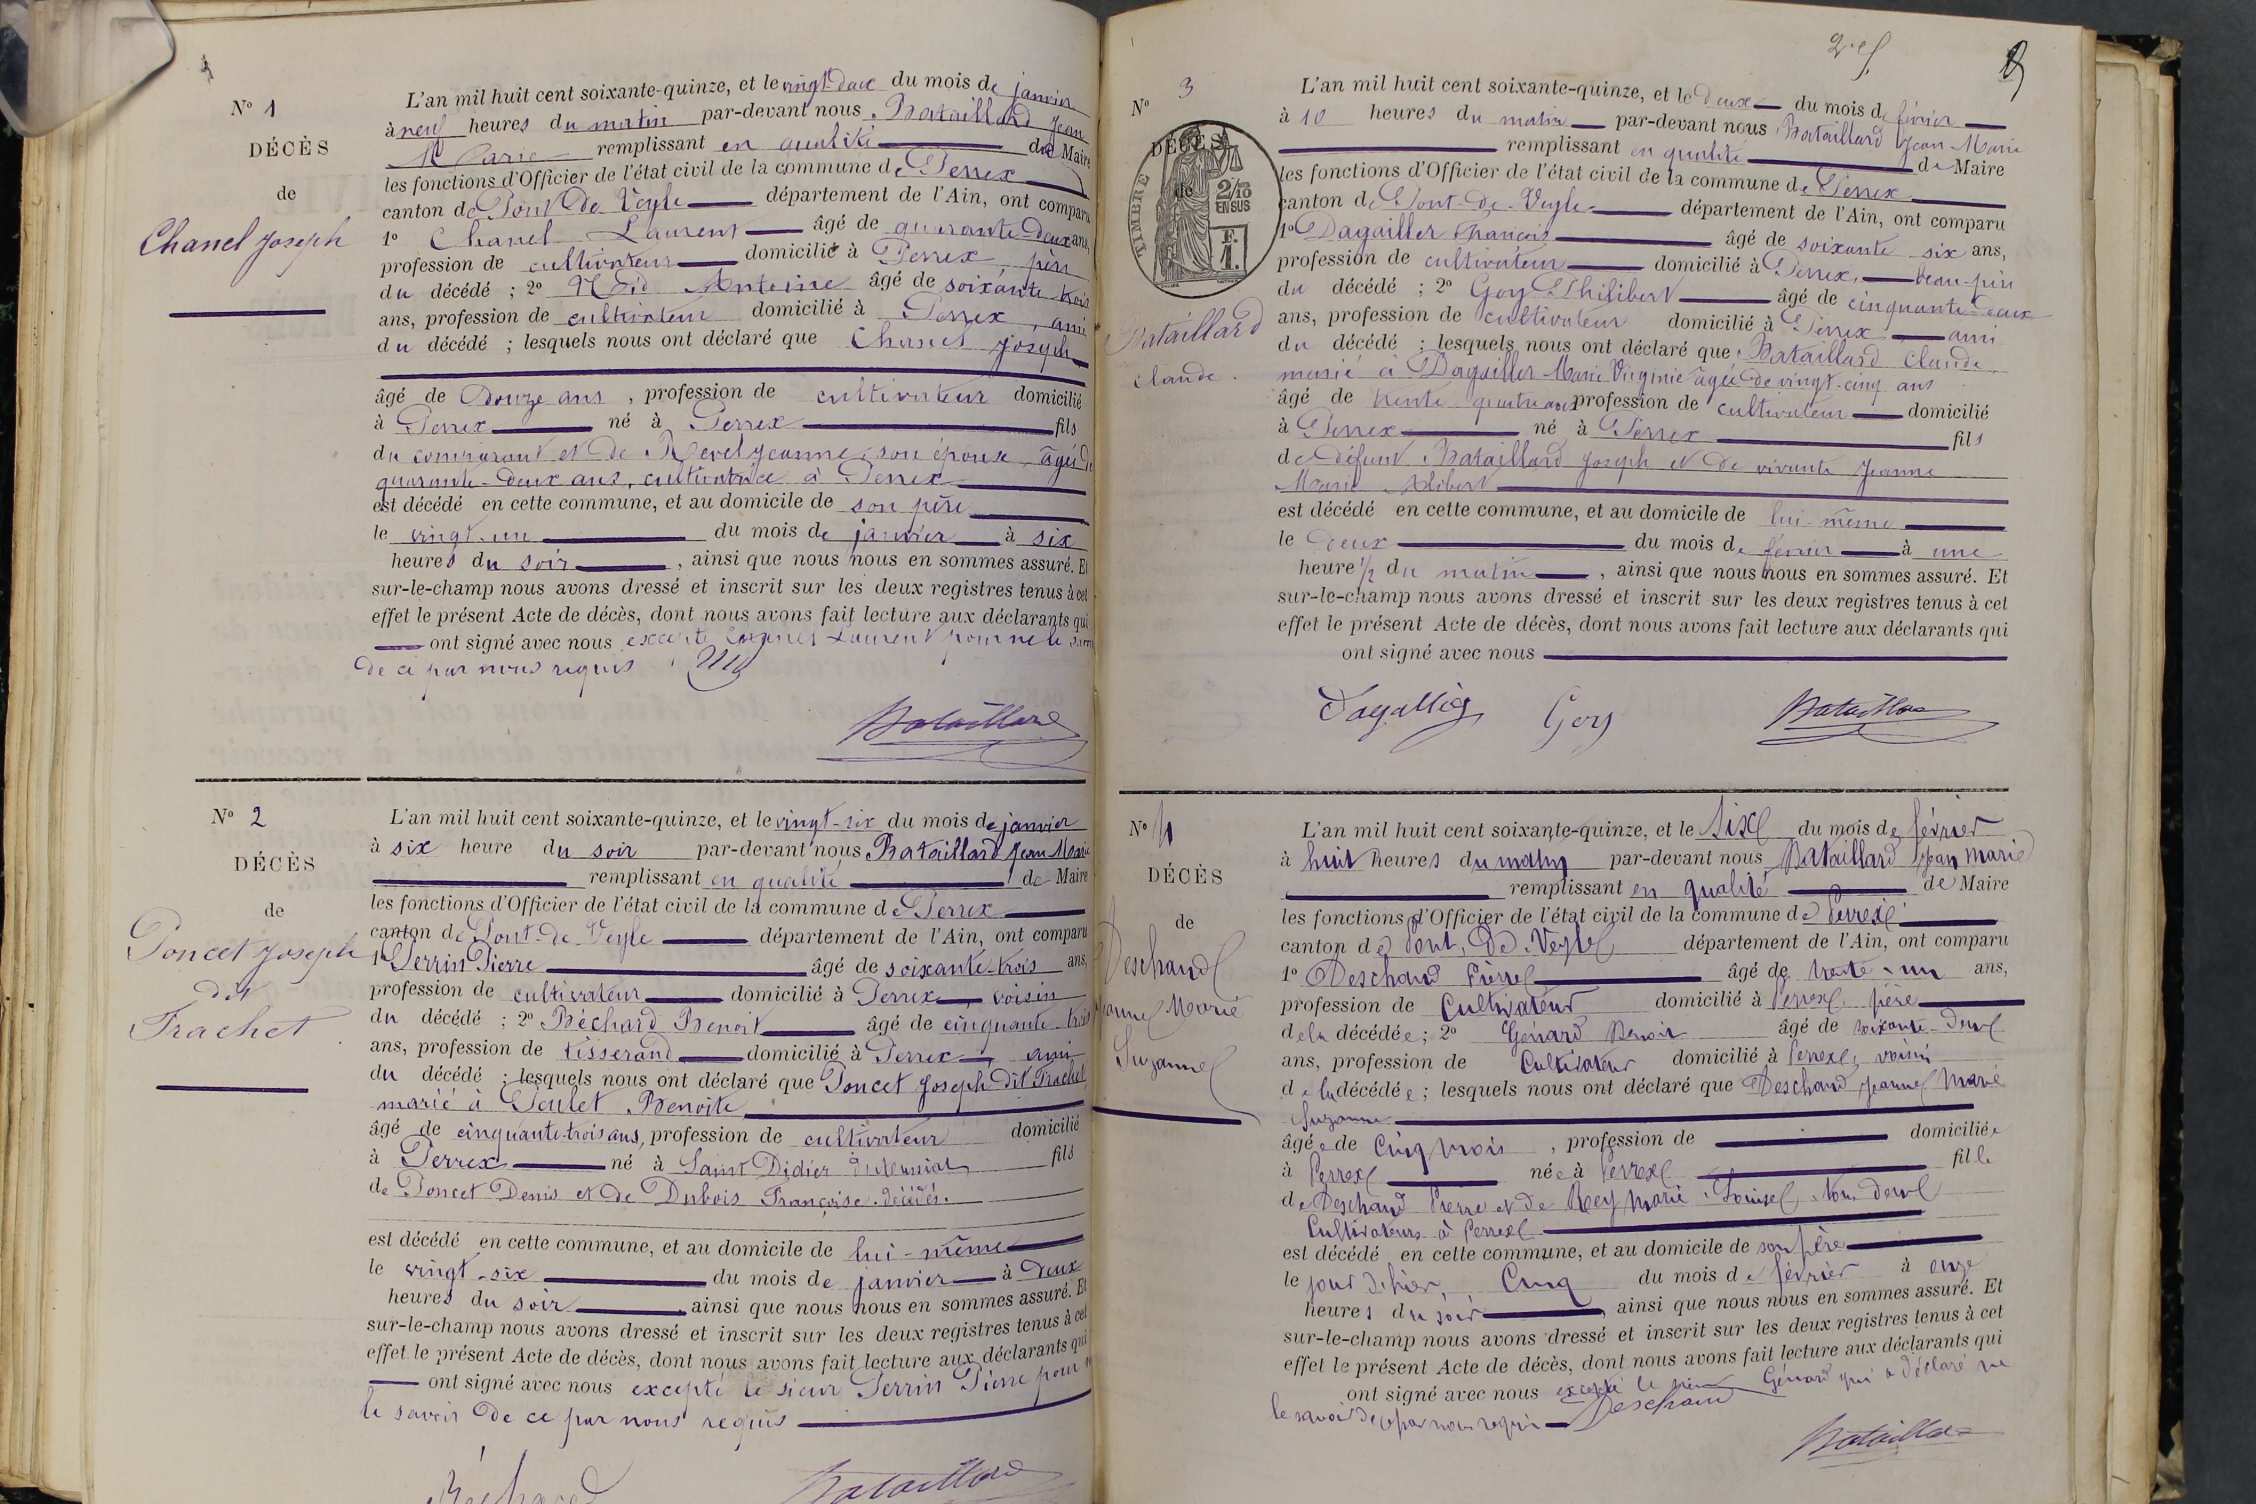 N° 1
DÉCÈS
de
Chanel Joseph
L'an mil huit cent soixante-quinze, et le vingt-deux du mois de janvier
à neuf heures du matin par-devant nous Bataillard Jean
Marie remplissant en qualité de Maire
les fonctions d'Officier de l'état civil de la commune de Perrex
canton de Pont de Veyle département de l'Ain, ont comparu
1° Chanel Laurent âgé de quarante-deux ans,
profession de cultivateur domicilié à Perrex, père
du décédé ; 2° Antoine âgé de soixante trois
ans, profession de cultivateur domicilié à Perrex, ami
du décédé ; lesquels nous ont déclaré que Chanel Joseph
âgé de Douze ans, profession de cultivateur domicilié
à Perrex né à Perrex fils
du comparant et de Revel Jeanne, son épouse, âgée de
quarante-deux ans, cultivatrice à Perrex
est décédé en cette commune, et au domicile de son père
le vingt-un du mois de janvier à six
heures du soir, ainsi que nous nous en sommes assuré. Et
sur-le-champ nous avons dressé et inscrit sur les deux registres tenus à cet
effet le présent Acte de décès, dont nous avons fait lecture aux déclarants qui
ont signé avec nous excepté Laurent pour ne le savoir
de ce par nous requis
Bataillard
N° 2
DÉCÈS
de
Poncet Joseph
dit
Trachet
L'an mil huit cent soixante-quinze, et le vingt-six du mois de janvier
à six heure du soir par-devant nous Bataillard Jean Marie
remplissant en qualité de Maire
les fonctions d'Officier de l'état civil de la commune de Perrex
canton de Pont-de-Veyle département de l'Ain, ont comparu
1° Perrin Pierre âgé de soixante-trois ans,
profession de cultivateur domicilié à Perrex, voisin
du décédé ; 2° Béchard Benoit âgé de cinquante-trois
ans, profession de tisserand domicilié à Perrex, ami
du décédé ; lesquels nous ont déclaré que Poncet Joseph dit Trachet
marié à Benoite
âgé de cinquante-trois ans, profession de cultivateur domicilié
à Perrex né à Saint Didier fils
de Poncet Denis et de Dubois Françoise décédés.
est décédé en cette commune, et au domicile de lui-même
le vingt-six du mois de janvier à deux
heures du soir ainsi que nous nous en sommes assuré. Et
sur-le-champ nous avons dressé et inscrit sur les deux registres tenus à cet
effet le présent Acte de décès, dont nous avons fait lecture aux déclarants qui
ont signé avec nous excepté le sieur Perrin Pierre pour ne
le savoir de ce par nous requis
Béchard Bataillard
N° 3
DÉCÈS
de
TIMBRE
2/10
EN SUS
F.
1.
Bataillard
Claude.
L'an mil huit cent soixante-quinze, et le deux du mois de février
à 10 heures du matin par-devant nous Bataillard Jean Marie
remplissant en qualité de Maire
les fonctions d'Officier de l'état civil de la commune de Perrex
canton de Pont-de-Veyle département de l'Ain, ont comparu
1° Dagailler François âgé de soixante six ans,
profession de cultivateur domicilié à Perrex, beau-père
du décédé ; 2° Goy Philibert âgé de cinquante-deux
ans, profession de cultivateur domicilié à Perrex ami
du décédé ; lesquels nous ont déclaré que Bataillard Claude
marié à Dagailler Marie Virginie âgée de vingt-cinq ans
âgé de trente-quatre ans profession de cultivateur domicilié
à Perrex né à Perrex fils
de défunt Bataillard Joseph et de vivante Jeanne
Marie Alibert
est décédé en cette commune, et au domicile de lui-même
le deux du mois de février à une
heure 1/2 du matin, ainsi que nous nous en sommes assuré. Et
sur-le-champ nous avons dressé et inscrit sur les deux registres tenus à cet
effet le présent Acte de décès, dont nous avons fait lecture aux déclarants qui
ont signé avec nous
Dagallier Goy Bataillard
N° 4
DÉCÈS
de
Deschand
Jeanne Marie
Suzanne
L'an mil huit cent soixante-quinze, et le Six du mois de février
à huit heures du matin par-devant nous Bataillard Jean Marie
remplissant en qualité de Maire
les fonctions d'Officier de l'état civil de la commune de Perrex
canton de Pont, De, Veyle département de l'Ain, ont comparu
1° Deschand Pierre âgé de trente-un ans,
profession de Cultivateur domicilié à Perrex, père
de la décédée ; 2° Génard Benoit âgé de soixante-deux
ans, profession de Cultivateur domicilié à Perrex, voisin
de la décédée ; lesquels nous ont déclaré que Deschand Jeanne Marie
Suzanne
âgée de Cinq mois, profession de domiciliée
à Perrex née à Perrex fille
de Deschand Pierre et de Rey Marie Louise tous deux
Cultivateurs à Perrex
est décédé en cette commune, et au domicile de son père
le jour d'hier, Cinq du mois de février à onze
heures du soir, ainsi que nous nous en sommes assuré. Et
sur-le-champ nous avons dressé et inscrit sur les deux registres tenus à cet
effet le présent Acte de décès, dont nous avons fait lecture aux déclarants qui
ont signé avec nous excepté le sieur Génard qui a déclaré ne
le savoir de ce par nous requis Deschand
Bataillard